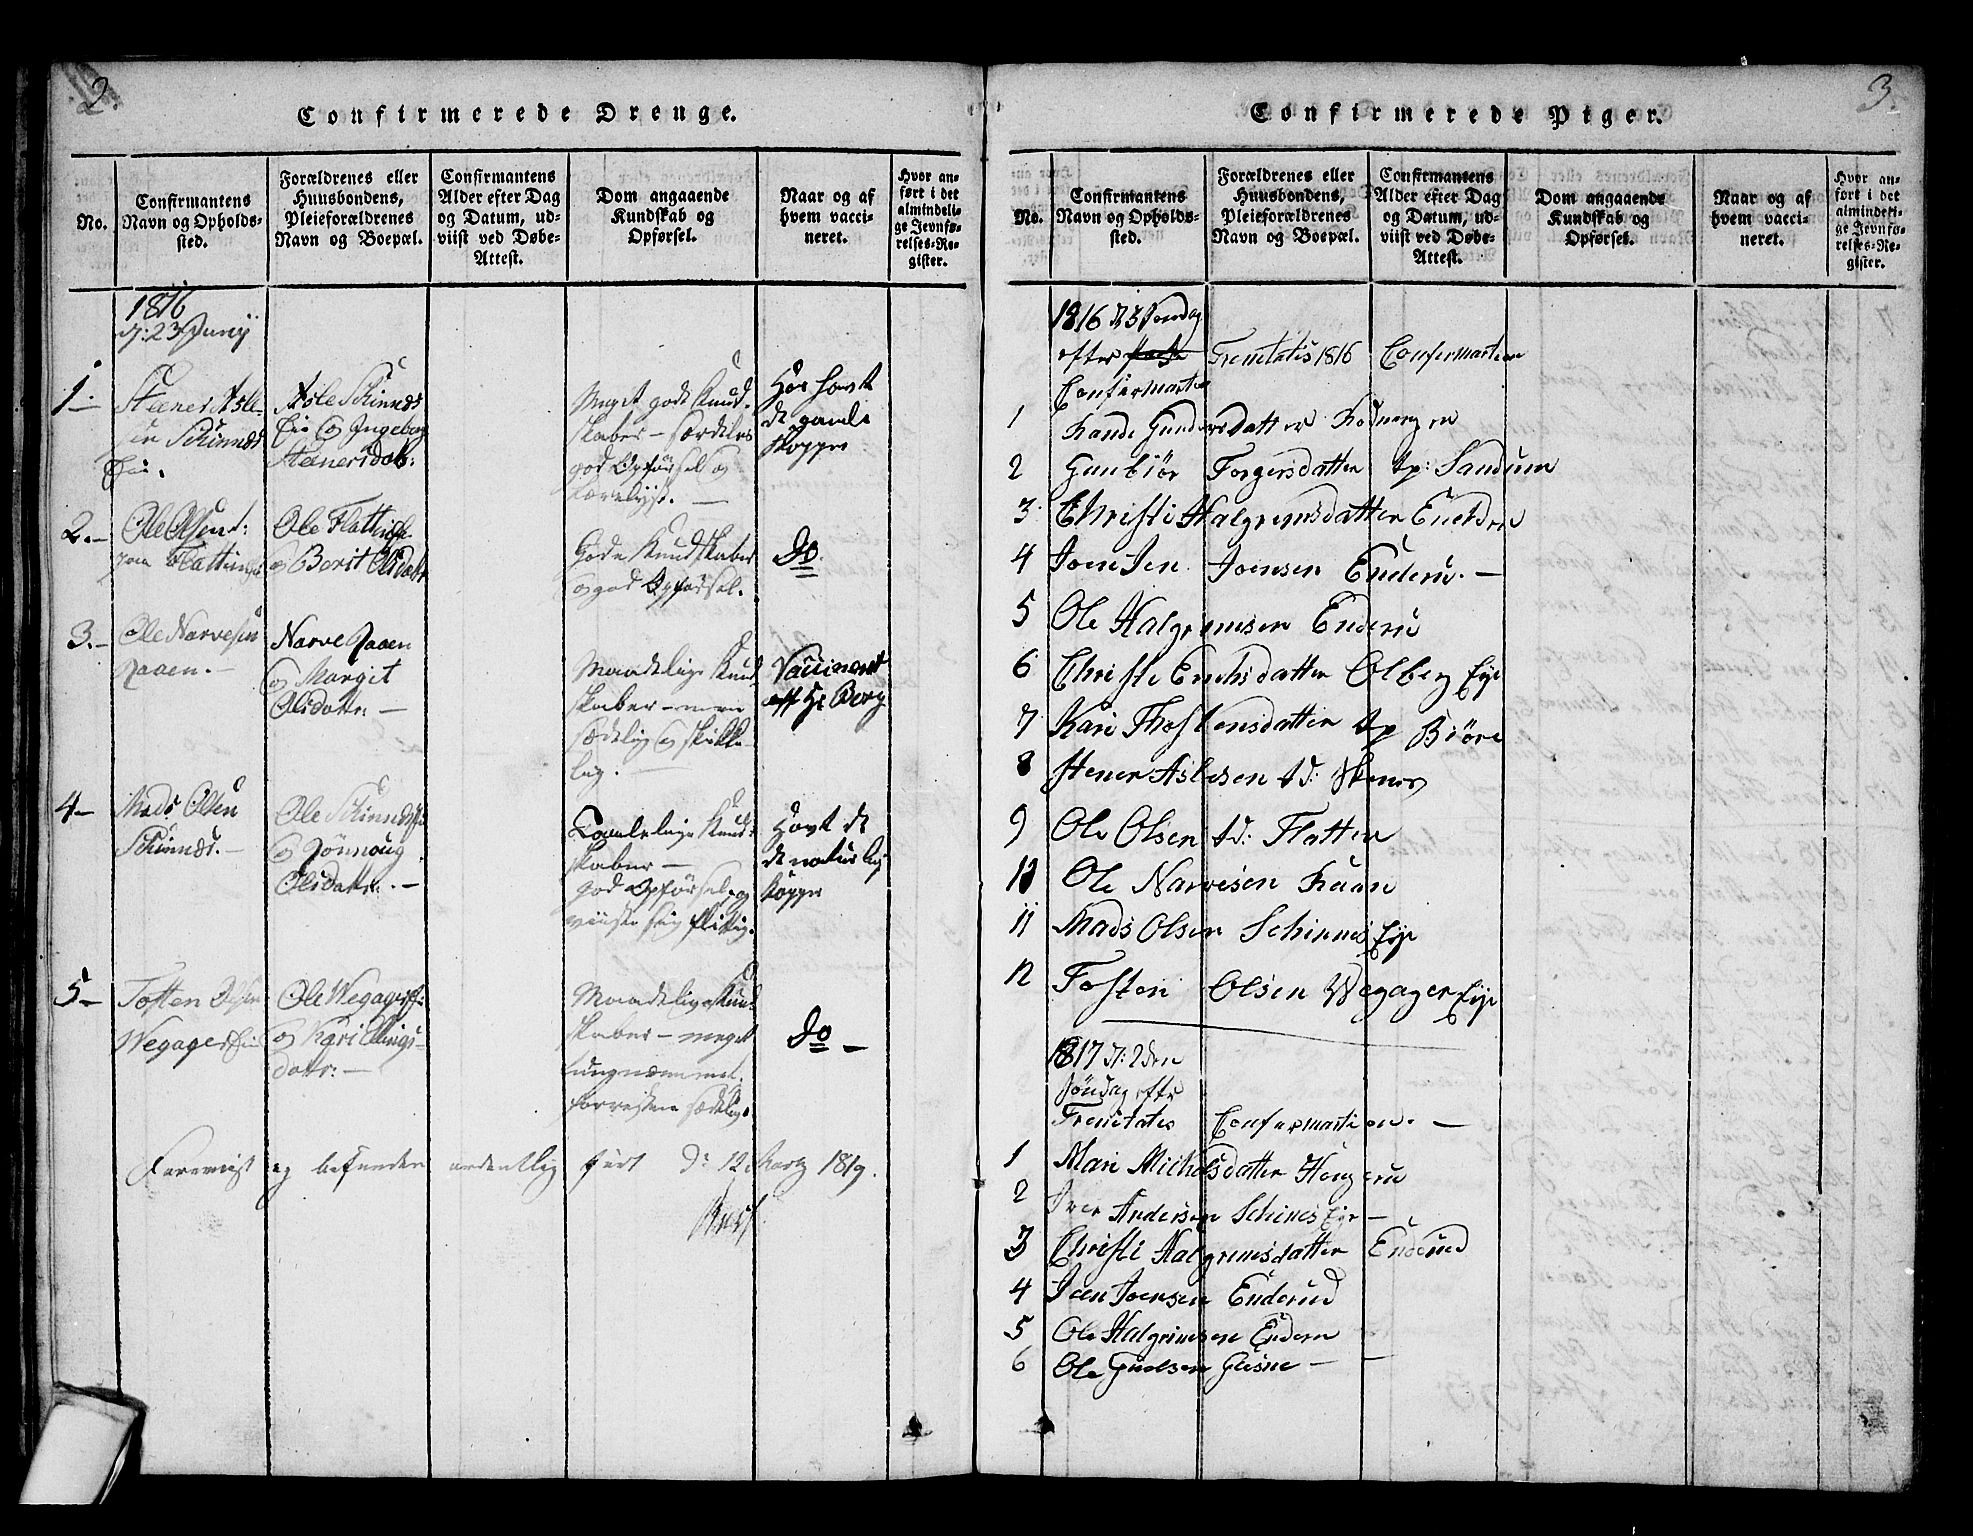 2.
Confirmerede Drenge.
No.
Confirmantens
Navn og Opholds-
sted.
Forældrenes eller
Huusbondens,
Pleieforældrenes
Navn og Boepæl.
Confirmantens
Alder efter Dag
og Datum, ud-
viist ved Døbe-
Attest.
Dom angaaende
Kundskab og
Opførsel.
Naar og af
hvem vacci-
neret.
Hvor an-
ført i det
almindeli-
ge Jevnfø-
relses-Re-
gister.
1816
d: 23 Junij
1.
Stener Asle-
sen Skinnes
Eie.
Asle Skinnes
Eie og Ingebor
Steners dat:
Meget gode Kund-
skaber – særdeles
god Opførsel og
Har havt
de gamle
Kopper
2.–
Ole Olsen
Ole Flatten
og Berit Olsdatr
Gode Kundskaber
og god Opførsel.
Do
3.–
Ole Narvesen
Raaen.–
Narve Raaen
og Margit
Olsdattr: –
Maadelige Kund
skaber – men
sædelig og skikke-
lig. –
Vaccineret
aff Hr Berg
4–
Mads Olsen
Skinnes.–
Ole Skinnes
og Rönnoug
Olsdattr. –
Taalelige Kund-
skaber –
god Opførsel og
viiste sig flittig.
Havt de
de naturlig
Kopper
5–
Tosten Olsen
Wegager Eie
Ole Wegager
og Kari Ellings-
dattr: –
Maadelige Kund
skaber – meget
tungnemmet,
forresten sædelig.
Do –
Foreviist og befunden ordentlig ført D: 12 Martz 1819.
3.
Confirmerede Piger.
No.
Confirmantens
Navn og Opholds-
sted.
Forældrenes eller
Huusbondens,
Pleieforældrenes
Navn og Boepæl.
Confirmantens
Alder efter Dag
og Datum, ud-
viist ved Døbe-
Attest.
Dom angaaende
Kundskab og
Opførsel.
Naar og af
hvem vacci-
neret.
Hvor an-
ført i det
almindeli-
ge Jevnfø-
relses-Re-
gister.
1816 D 3 Søndag
efter Trenitatis 1816 Confermartion
Confermartion
1 Gundersdatter
2 Gunbiör Torgersdatter Sandum
3 Christi Halgremsdatter Enerden
4 Joen Jen Joensen Enderu. –
5 Ole Halgrimsen Enderu
6 Christi Erichsdatter Olberg Eje
7 Kari Thostensdatter Biöre
8 Stener Aslesen Skenes
9 Ole Olsen Flatten
10 Ole Narvesen Raan
11 Mads Olsen Schinnes Eje
12 Tosten Olsen Wegager Eje
1817 D: 2den
Söndag efter
Trenitatis Confermartion. –
1 Mari Michelsdatter Hougeru
2 Iver Andersen Schines Eje –
3 Christi Halgremsdatter Enderud
4 Joen Joensen Enderud
5 Ole Halgrimsen Enderu
6 Ole Gudlsen Glesne –